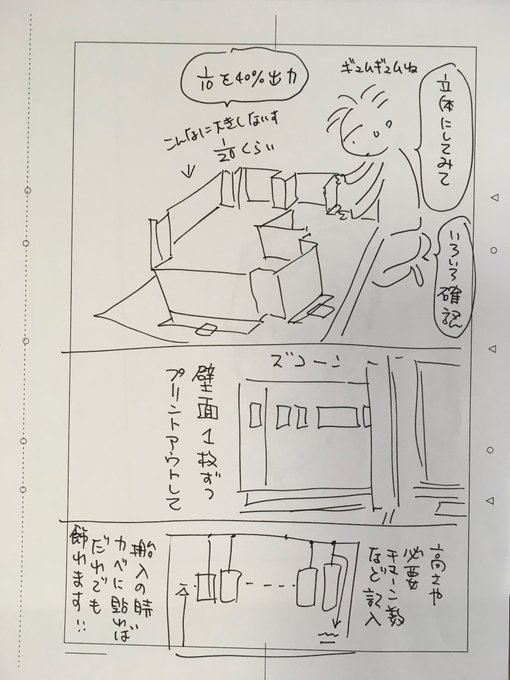 立体にしてみて
ギュムギュムね
いろいろ確認
1/10を40%出力
こんなに大きくしないす
1/20くらい
ズコーン
壁面1枚ずつ
プリントアウトして
高さや
必要
チェーン数
など記入
搬入の時
カベに貼れば
だれでも
飾れます!!